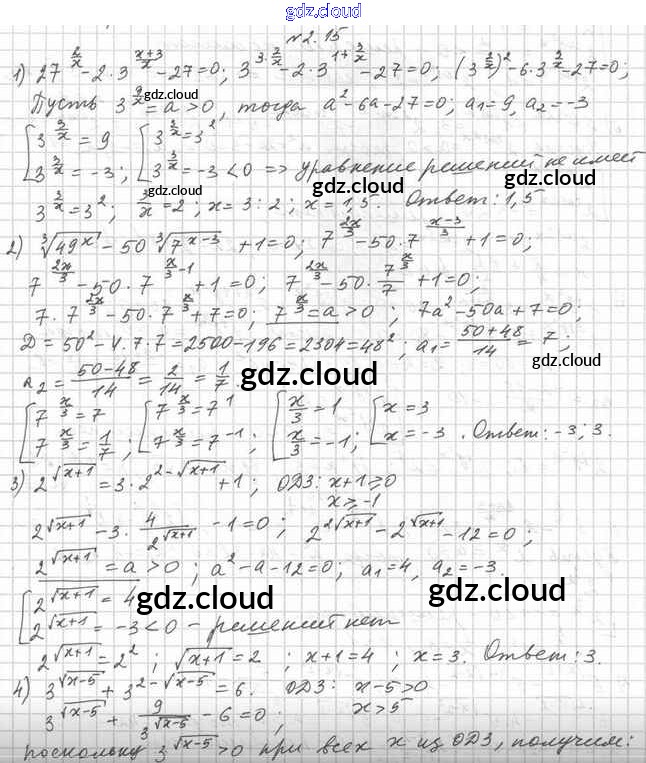 gdz.cloud
№2.15
1) 27^{2/x} - 2·3^{(x+3)/x} - 27 = 0; 3^{3·2/x} - 2·3^{1+3/x} - 27 = 0; (3^{3/x})^2 - 6·3^{3/x} - 27 = 0;
Пусть 3^{3/x} = a > 0, тогда a^2 - 6a - 27 = 0; a_1 = 9, a_2 = -3
gdz.cloud
[3^{3/x} = 9 [3^{3/x} = 3^2
gdz.cloud
3^{3/x} = -3; 3^{3/x} = -3 < 0 => уравнение решений не имеет
gdz.cloud gdz.cloud
3^{3/x} = 3^2; 3/x = 2; x = 3:2; x = 1,5. Ответ: 1,5
2) ∛(49^x) - 50∛(7^{x-3}) + 1 = 0; 7^{2x/3} - 50·7^{(x-3)/3} + 1 = 0;
gdz.cloud
7^{2x/3} - 50·7^{x/3-1} + 1 = 0; 7^{2x/3} - 50·7^{x/3}/7 + 1 = 0;
7·7^{2x/3} - 50·7^{x/3} + 7 = 0; 7^{x/3} = a > 0; 7a^2 - 50a + 7 = 0;
D = 50^2 - 4·7·7 = 2500 - 196 = 2304 = 48^2; a_1 = (50+48)/14 = 7;
a_2 = (50-48)/14 = 2/14 = 1/7.
gdz.cloud
[7^{x/3} = 7 [7^{x/3} = 7^1 [x/3 = 1 [x = 3
7^{x/3} = 1/7; 7^{x/3} = 7^{-1}; x/3 = -1; x = -3. Ответ: -3; 3.
3) 2^{√(x+1)} = 3·2^{2-√(x+1)} + 1; ОДЗ: x+1 ⩾ 0
x ⩾ -1
2^{√(x+1)} - 3·4/2^{√(x+1)} - 1 = 0; 2^{2√(x+1)} - 2^{√(x+1)} - 12 = 0;
2^{√(x+1)} = a > 0; a^2 - a - 12 = 0; a_1 = 4, a_2 = -3.
[2^{√(x+1)} = 4
gdz.cloud gdz.cloud
2^{√(x+1)} = -3 < 0 - решений нет
2^{√(x+1)} = 2^2; √(x+1) = 2; x+1 = 4; x = 3. Ответ: 3.
4) 3^{√(x-5)} + 3^{2-√(x-5)} = 6. ОДЗ: x-5 > 0
x > 5
3^{√(x-5)} + 9/3^{√(x-5)} - 6 = 0;
поскольку 3^{√(x-5)} > 0 при всех x из ОДЗ, получим:
gdz.cloud